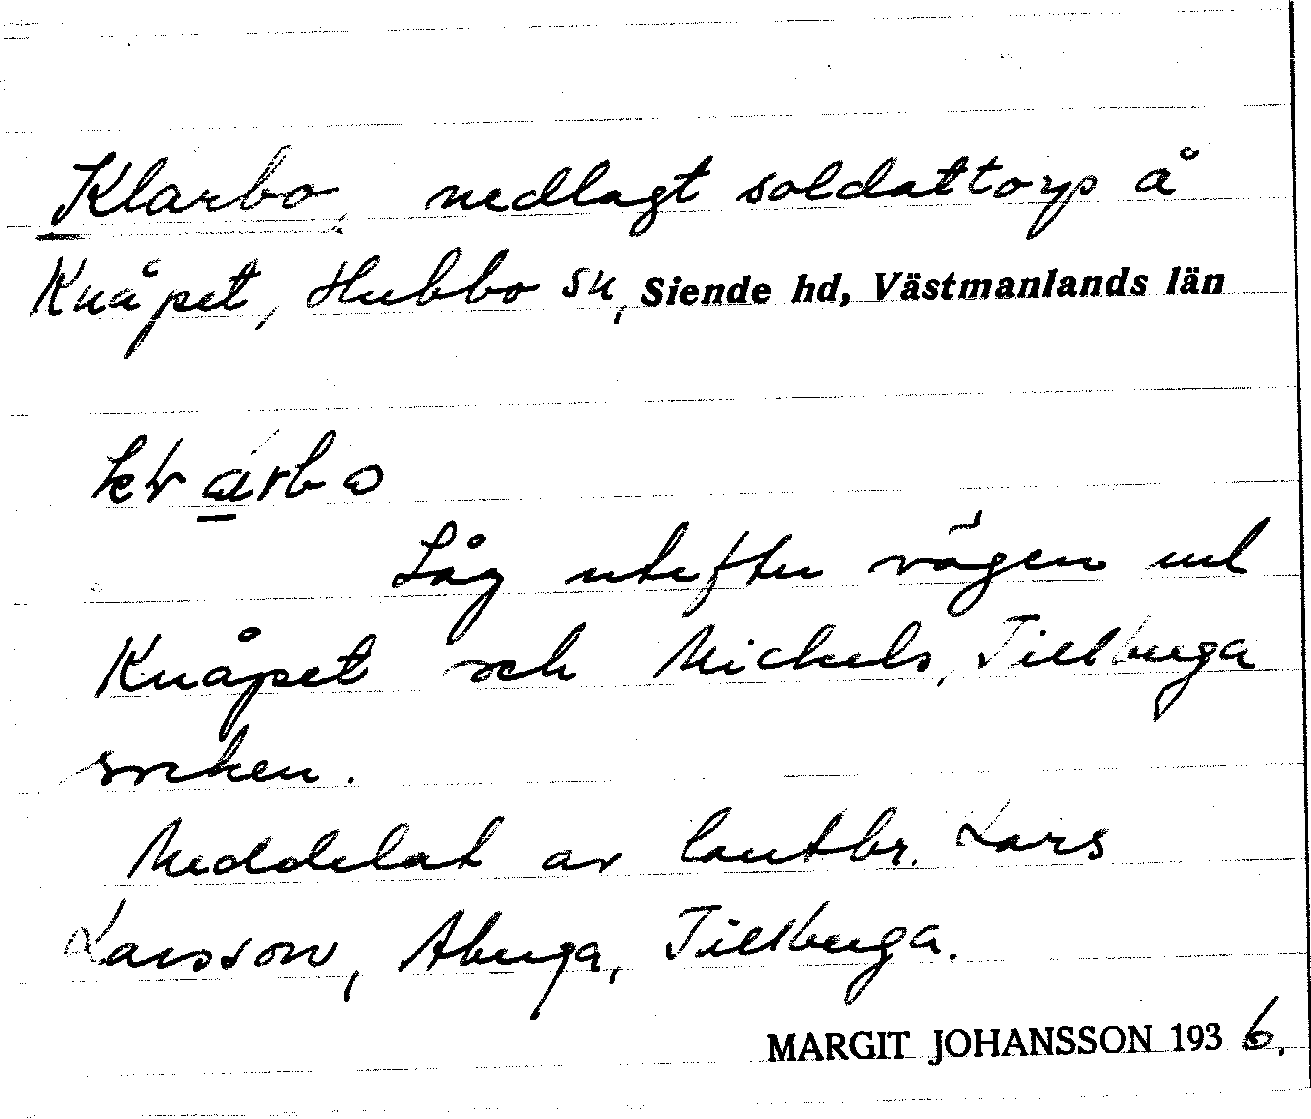 Klarbo, nedlagt soldattorp å
Knåpet, Hubbo sn, Siende hd, Västmanlands län
Låg utefter vägen ml
Knåpet och Mickels, Tillberga
socken.
Meddelat av lantbr. Lars
Larsson, Åberga, Tillberga.
MARGIT JOHANSSON 1936.